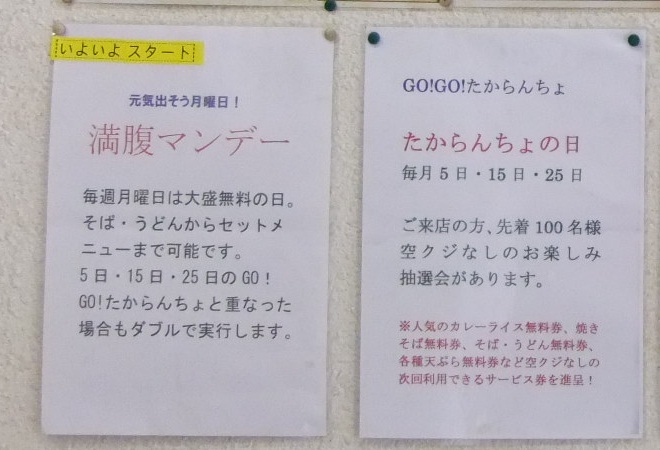 いよいよ スタート
元気出そう月曜日！
満腹マンデー
毎週月曜日は大盛無料の日。
そば・うどんからセットメ
ニューまで可能です。
5日・15日・25日のGO！
GO!たからんちょと重なった
場合もダブルで実行します。
GO!GO!たからんちょ
たからんちょの日
毎月5日・15日・25日
ご来店の方、先着100名様
空クジなしのお楽しみ
抽選会があります。
※人気のカレーライス無料券、焼き
そば無料券、そば・うどん無料券、
各種天ぷら無料券など空クジなしの
次回利用できるサービス券を進呈！